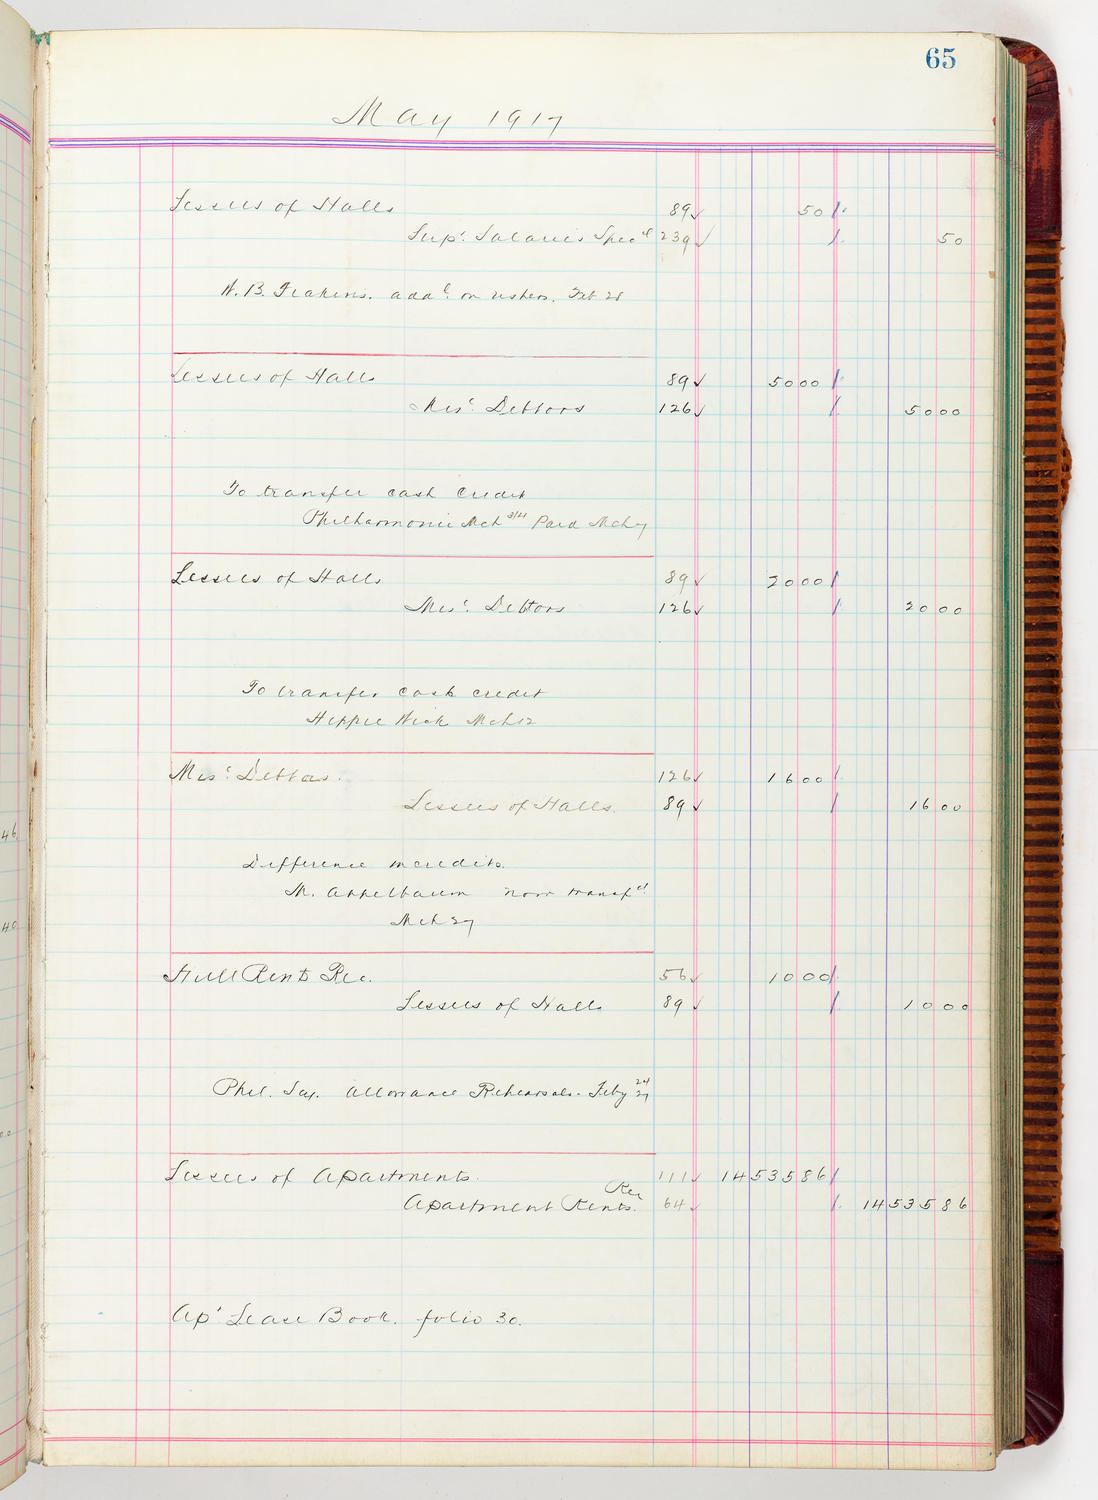 65
May 1917
Lessees of Halls 89✓ 50
Supt. Salaries Specl 239✓ 50
H. B. addl. on ushers. Feb 28
Lessees of Halls 89✓ 5000
Misc. Debtors 126✓ 5000
To transfer cash credit
Philharmonic Mch 3/4 Paid Mch 7
Lessees of Halls 89✓ 2000
Misc. Debtors 126✓ 2000
To transfer cash credit
Mch 12
Misc. Debtors. 126✓ 1600
Lessees of Halls. 89✓ 1600
Difference in credits.
M. Appelbaum now transfd
Mch 27
Hall Rents Rec. 56✓ 1000
Lessees of Halls 89✓ 1000
Phil. Soy. allowance Rehearsals. Feby 24 27
Lessees of Apartments. 111✓ 1453586
Apartment Rents. Rec 64✓ 1453586
Apt Lease Book. folio 30.
46
40
00